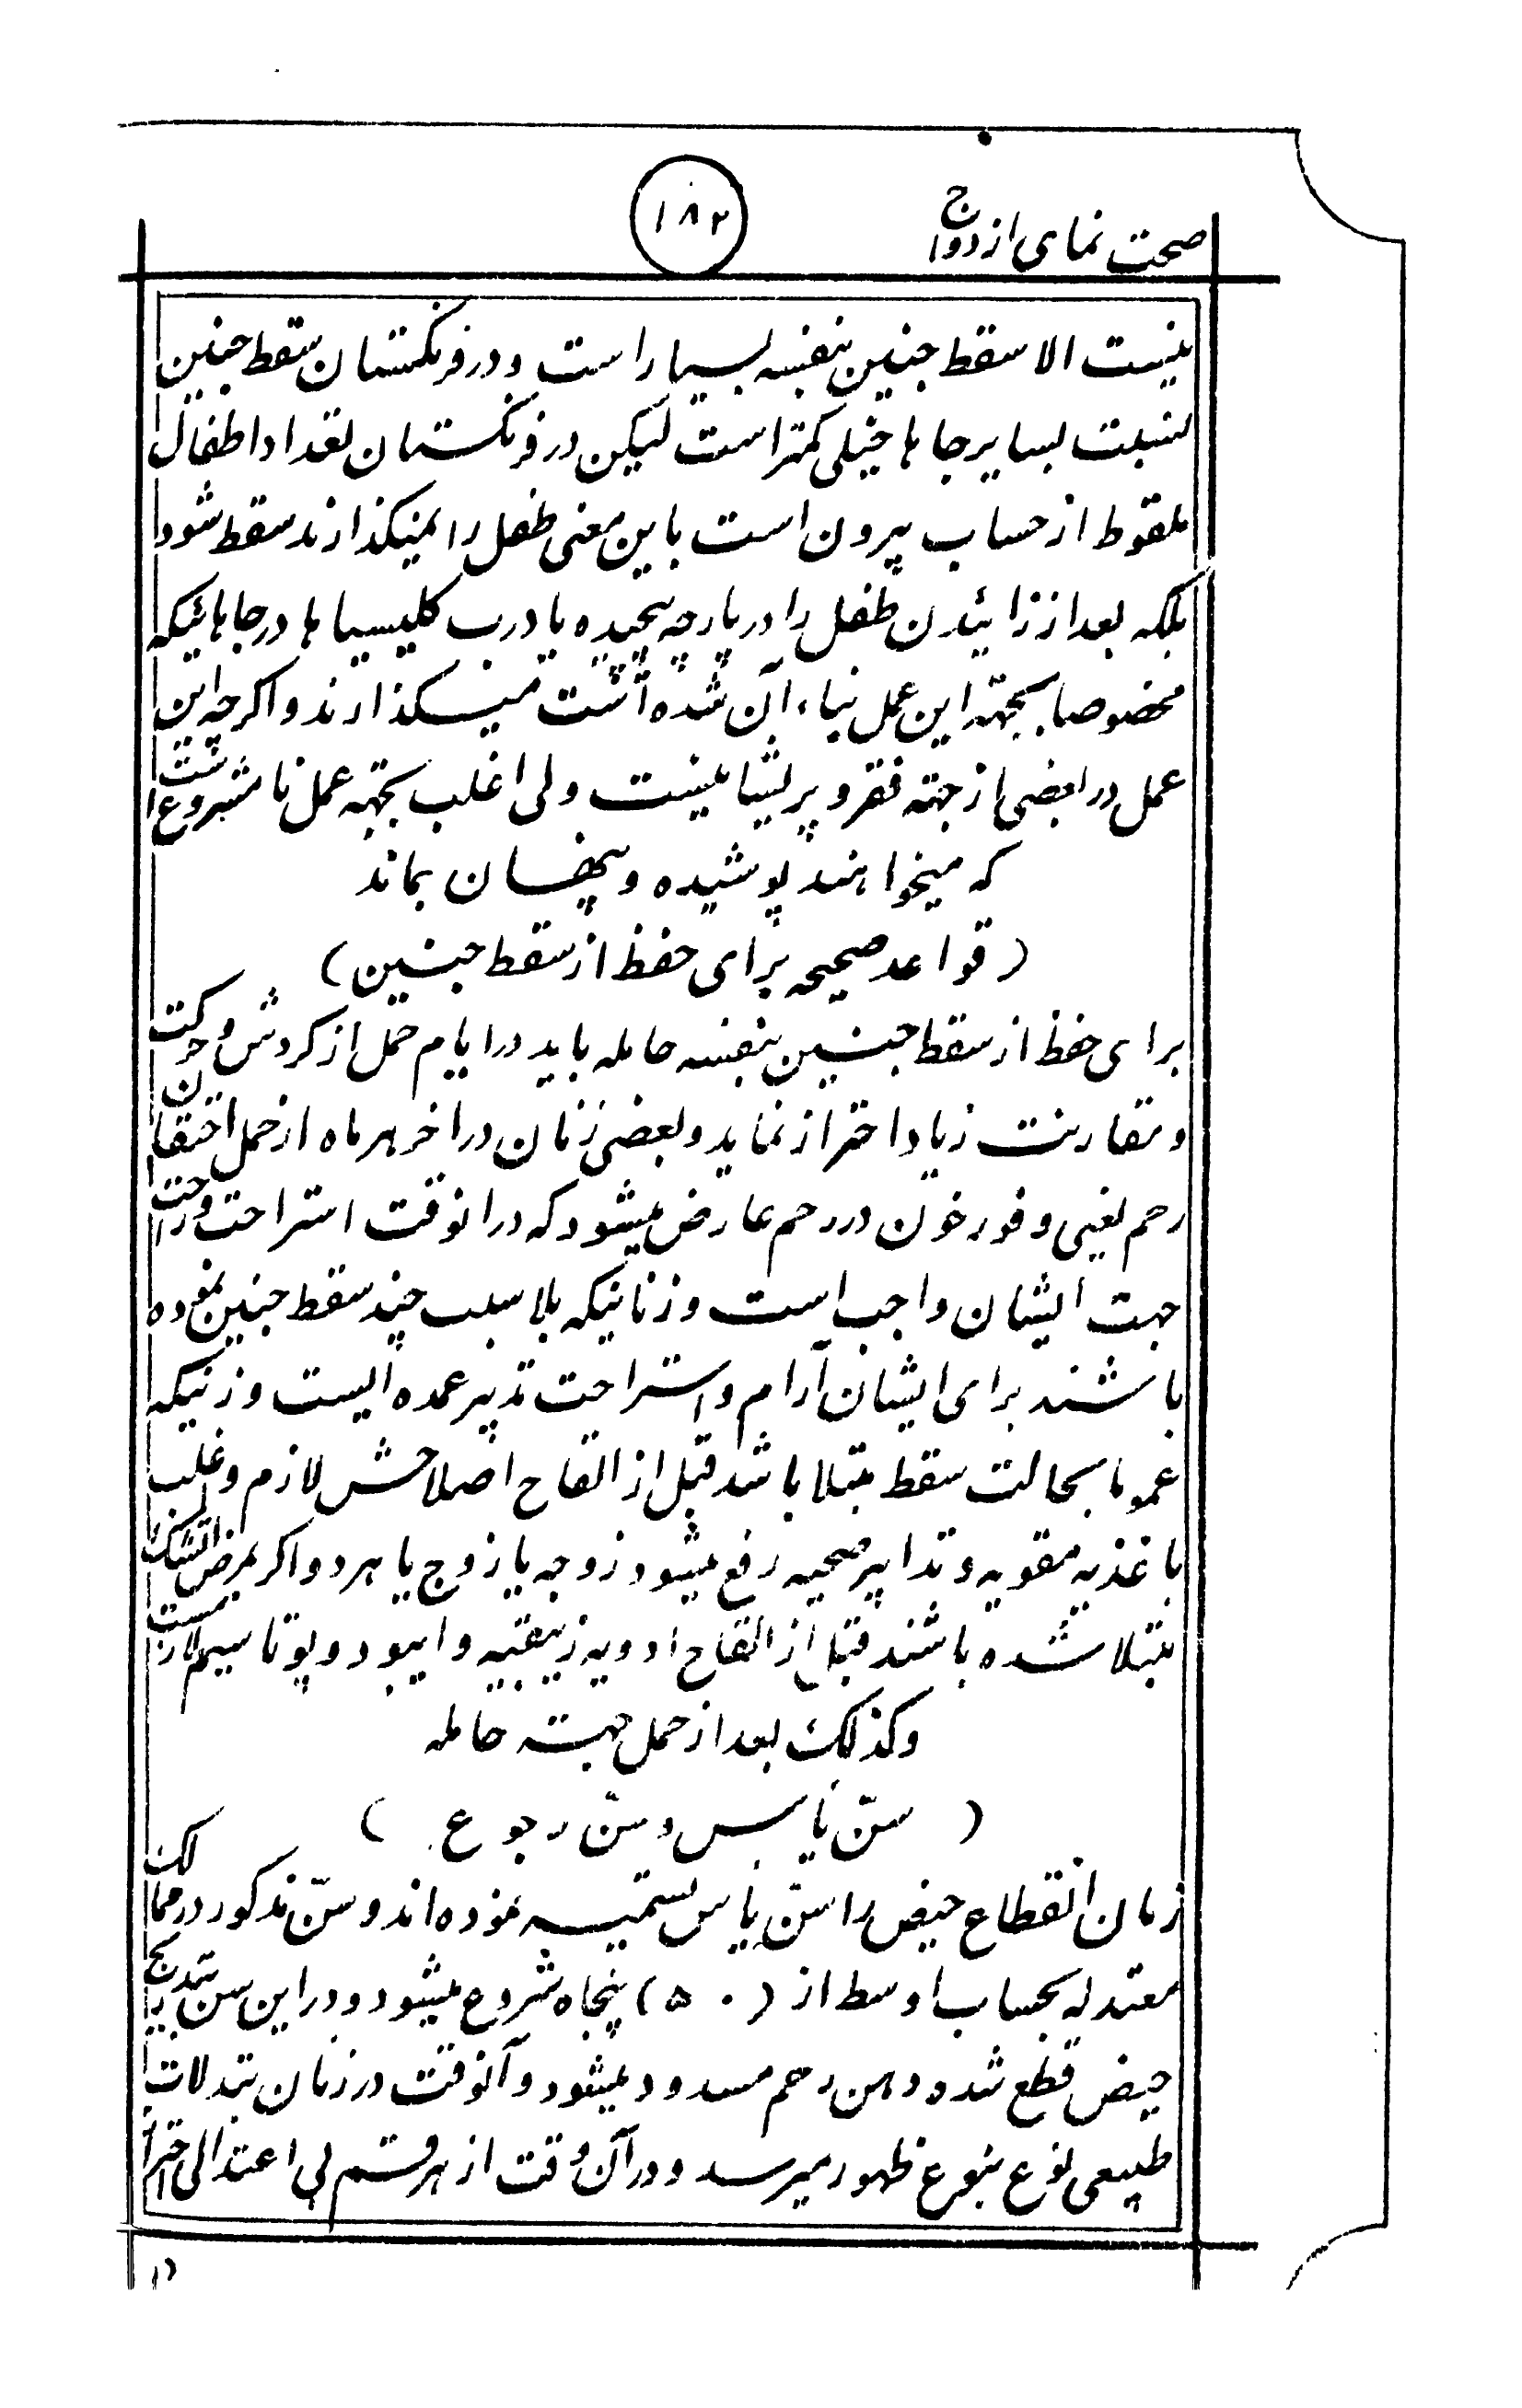 صحت نمای ازدواج
۱۸۲
نیست الا سقط جنین بنفسه بسیار است و در فرنگستان سقط جنین
بنسبت بسایر جاها خیلی کمتر است لیکن در فرنگستان تعداد اطفال
ملقوط از حساب بیرون است باین معنی طفل را نمیگذارند سقط شود
بلکه بعد از زائیدن طفل را در پارچه پیچیده یا درب کلیسیا ها در جاهائیکه
مخصوصا بجهته این عمل بناء آن شده است میگذارند و اگرچه این
عمل در بعضی از جهته فقر و پریشانیست ولی اغلب بجهته عمل نامشروع است
که میخواهند پوشیده و پنهان بماند
(قواعد صحیحه برای حفظ از سقط جنین)
برای حفظ از سقط جنین بنفسه حامله باید در ایام حمل از گردش و حرکت
و مقاربت زیاد احتراز نماید و بعضی زنان در اخر هر ماه از حمل احتقان
رحم یعنی وفور خون در رحم عارض میشود که در انوقت استراحت و راحت
جهت ایشان واجب است و زنانیکه بلا سبب چند سقط جنین نموده
باشند برای ایشان آرام و استراحت تدبیر عمده ایست و زنیکه
عموما بحالت سقط مبتلا باشد قبل از القاح اصلاحش لازم و اغلب
باغذیه مقویه و تدابیر صحیه رفع میشود زوجه یا زوج یا هر دو اگر بمرض آتشک
مبتلا شده باشند قبل از القاح ادویه زیبقیه و ایبود و پوتاسیم لازمست
و کذلک بعد از حمل جهته حامله
( سنّ یأس و سنّ رجوع )
زمان انقطاع حیض را سنّ یأس تسمیه نموده اند و سنّ مذکور در ممالک
معتدله بحساب اوسط از (۵۰) پنجاه شروع میشود و در این سن بتدریج
حیض قطع شده دهن رحم مسدود میشود و آنوقت در زنان تبدلات
طبیعی نوع بنوع ظهور میرسد و در آن وقت از هر قسم بی اعتدالی احتراز